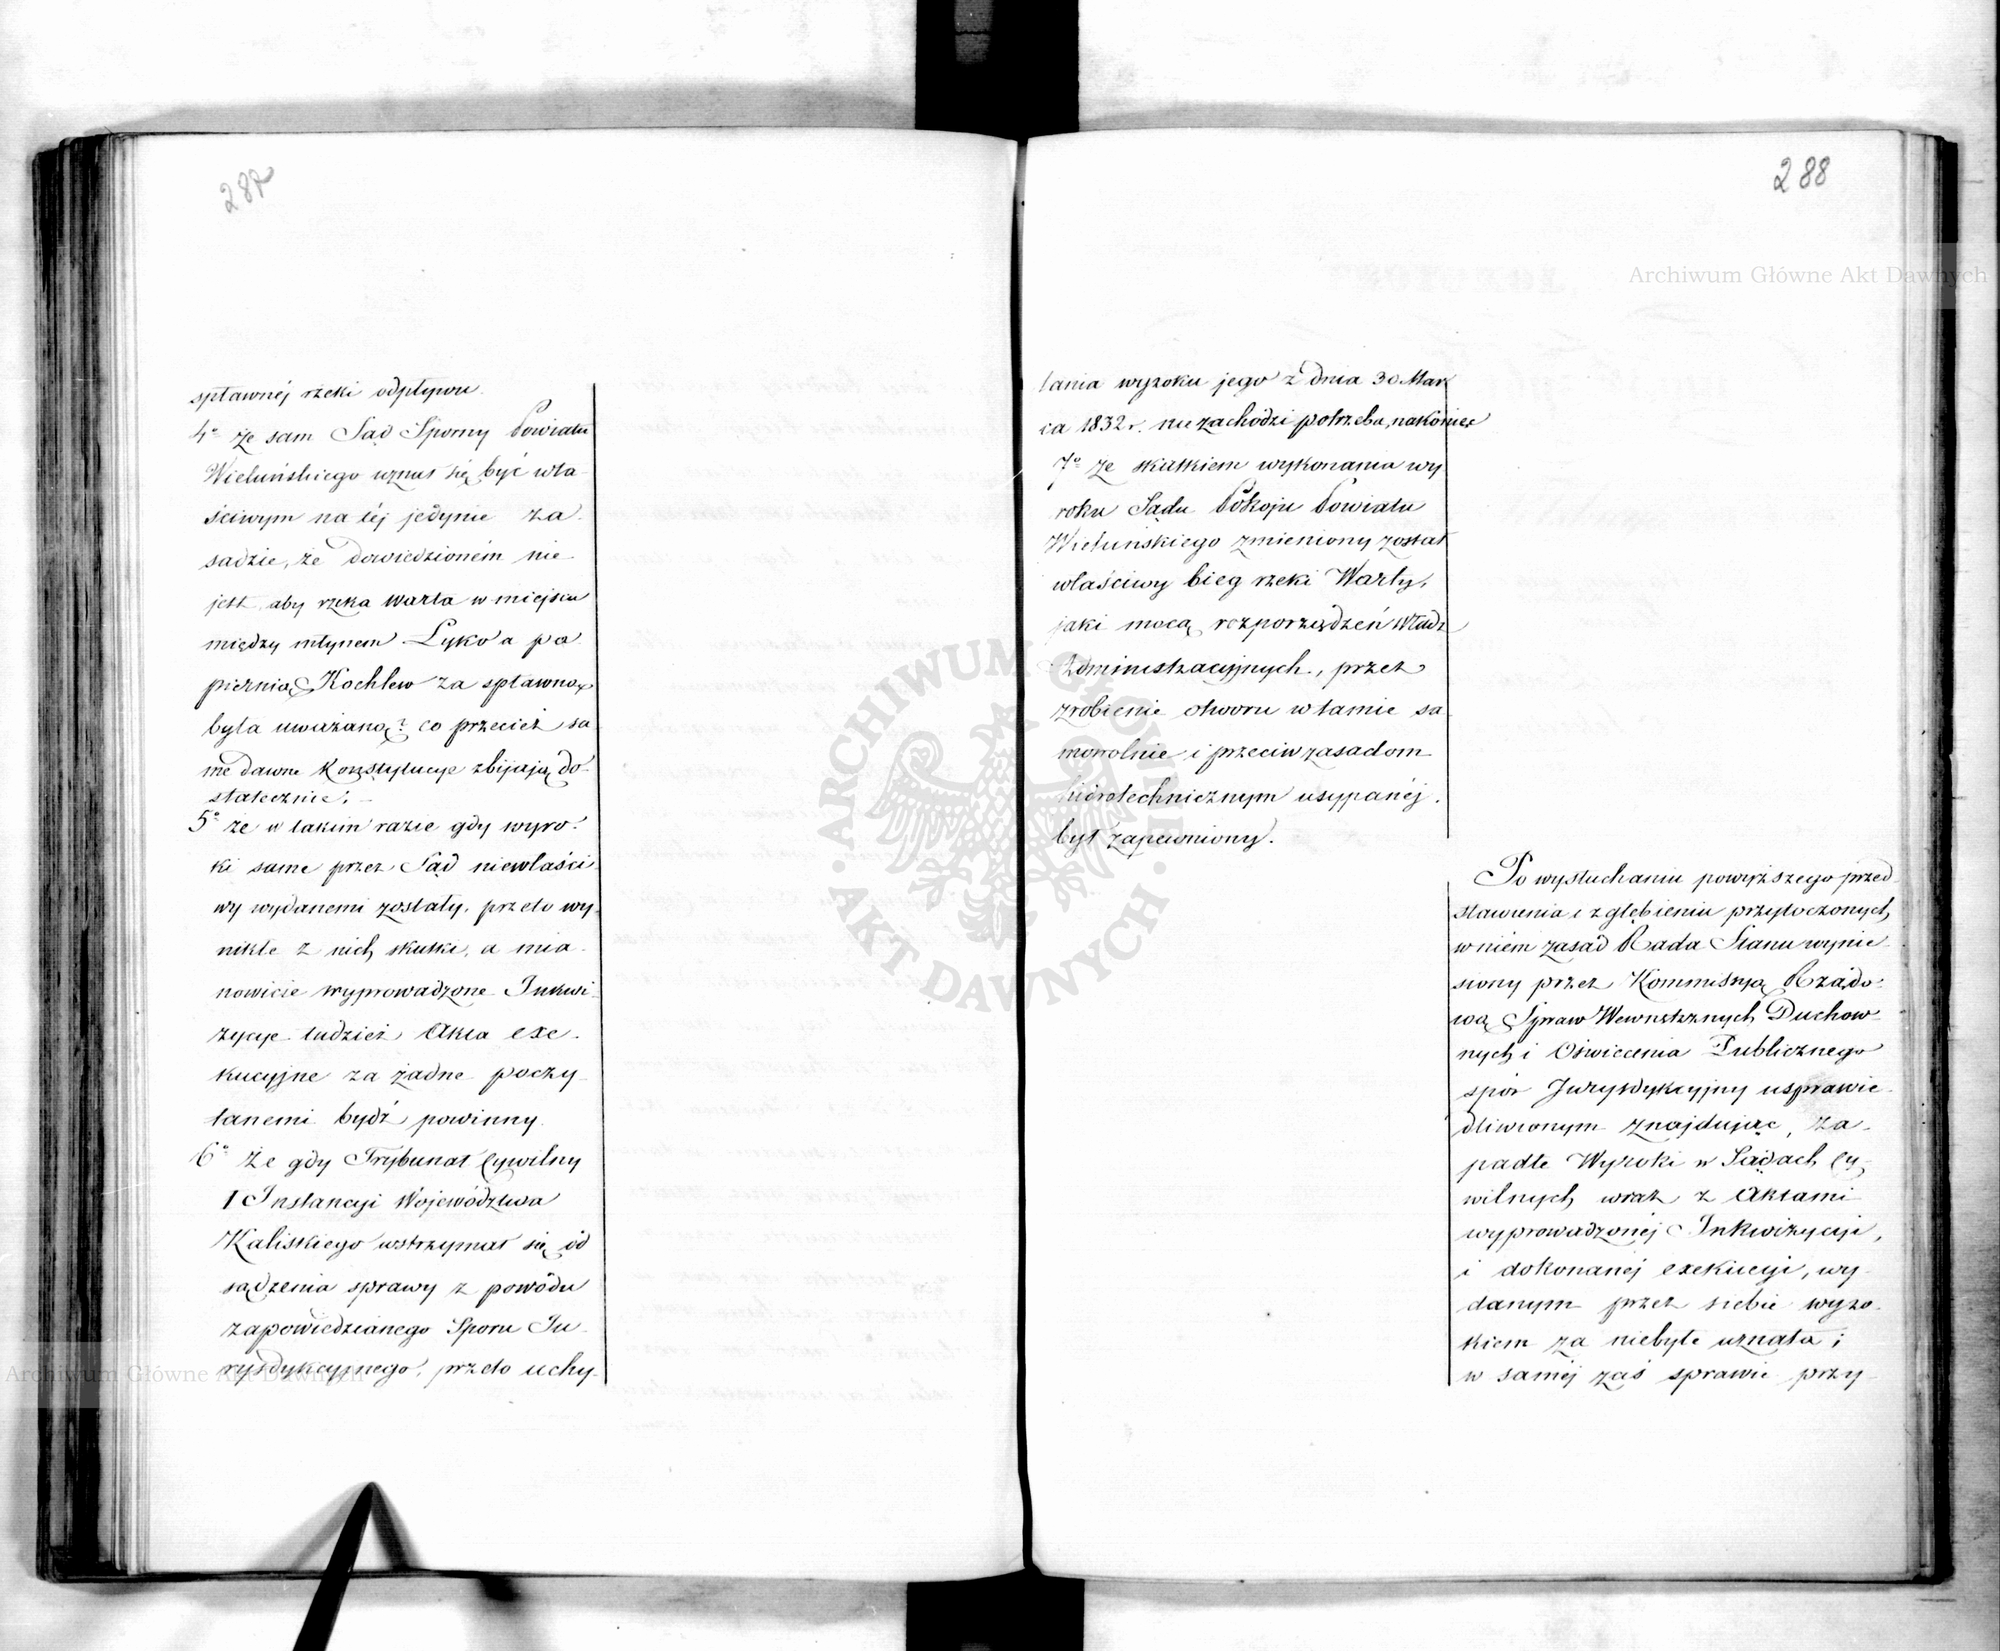 287
spławnéj rzeki odpływu.
4o że sam Sąd Sporny Powiatu
Wieluńskiego uznał się być wła-
ściwym na téj jedynie za-
sadzie, że dowiedzioném nie
jest aby rzeka Warta w miejscu
między młynem Łyko a pa-
piernią Kochlew za spławną
była uważaną? co przecież sa-
me dawne Konstytucye zbijają do-
statecznie;
5o że w takim razie gdy wyro-
ki same przez Sąd niewłaści-
wy wydanemi zostały, przeto wy-
nikłe z nich skutki, a mia-
nowicie wyprowadzone Inkwi-
zycye tudzież Akta exe-
kucyjne za żadne poczy-
tanemi bydź powinny.
6o Że gdy Trybunał Cywilny
1 Instancyi Województwa
Kaliskiego wstrzymał się od
sądzenia sprawy z powodu
zapowiedzianego Sporu Ju-
rysdykcyjnego, przeto uchy-
288
lania wyroku jego z dnia 30 Mar
ca 1832 r. nie zachodzi potrzeba, nakoniec
7o że skutkiem wykonania wy
roku Sądu Pokoju Powiatu
Wieluńskiego zmieniony został
właściwy bieg rzeki Warty,
jaki mocą rozporządzeń Władz
Administracyjnych, przez
zrobienie otworu w tamie sa-
mowolnie i przeciw zasadom
hidrotechnicznym usypanéj,
był zapewniony.
Po wysłuchaniu powyższego przed-
stawienia i zgłębieniu przytoczonych
w niém zasad Rada Stanu wynie-
siony przez Kommissyą Rządo-
wą Spraw Wewnętrznych Duchow-
nych i Oświecenia Publicznego
spór Jurysdykcyjny usprawie-
dliwionym znajdując, za-
padłe Wyroki w Sądach Cy-
wilnych wraz z Aktami
wyprowadzonéj Inkwizycyi,
i dokonanéj exekucyi, wy-
danym przez siebie wyro-
kiem za niebyłe uznała;
w saméj zaś sprawie przy-
Archiwum Główne Akt Dawnych
Archiwum Główne Akt Dawnych
ARCHIWUM GŁÓWNE AKT DAWNYCH